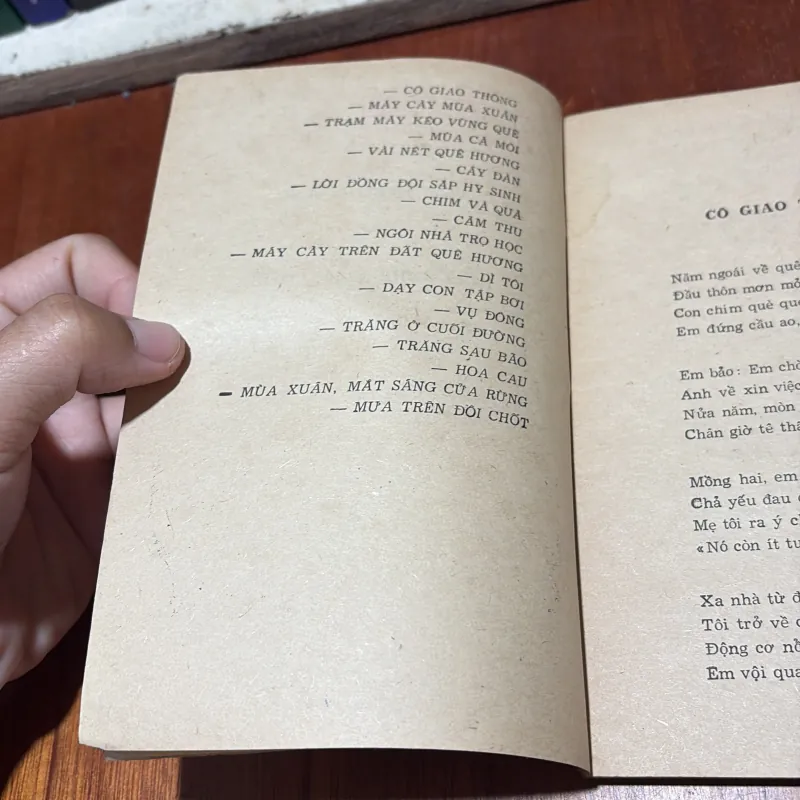 — CÔ GIAO THÔNG
— MÁY CÀY MÙA XUÂN
— TRẠM MÁY KÉO VÙNG QUÊ
— MÙA CÁ MÒI
— VÀI NÉT QUÊ HƯƠNG
— CÂY ĐÀN
— LỜI ĐỒNG ĐỘI SẮP HY SINH
— CHIM VÀ QUẢ
— CẢM THU
— NGÔI NHÀ TRỌ HỌC
— MÁY CÀY TRÊN ĐẤT QUÊ HƯƠNG
— DÌ TÔI
— DẠY CON TẬP BƠI
— VỤ ĐÔNG
— TRĂNG Ở CUỐI ĐƯỜNG
— TRĂNG SAU BÃO
— HOA CAU
— MÙA XUÂN, MẮT SÁNG CỬA RỪNG
— MƯA TRÊN ĐỒI CHỐT
CÔ GIAO
Năm ngoái về quê
Đầu thôn mơn mở
Con chim quê
Em đứng cầu ao,
Em bảo: Em
Anh về xin việc
Nửa năm, mòn
Chân giờ tê
Mồng hai, em
Chả yếu đau
Mẹ tôi ra ý
«Nó còn ít
Xa nhà từ
Tôi trở về
Động cơ
Em vội